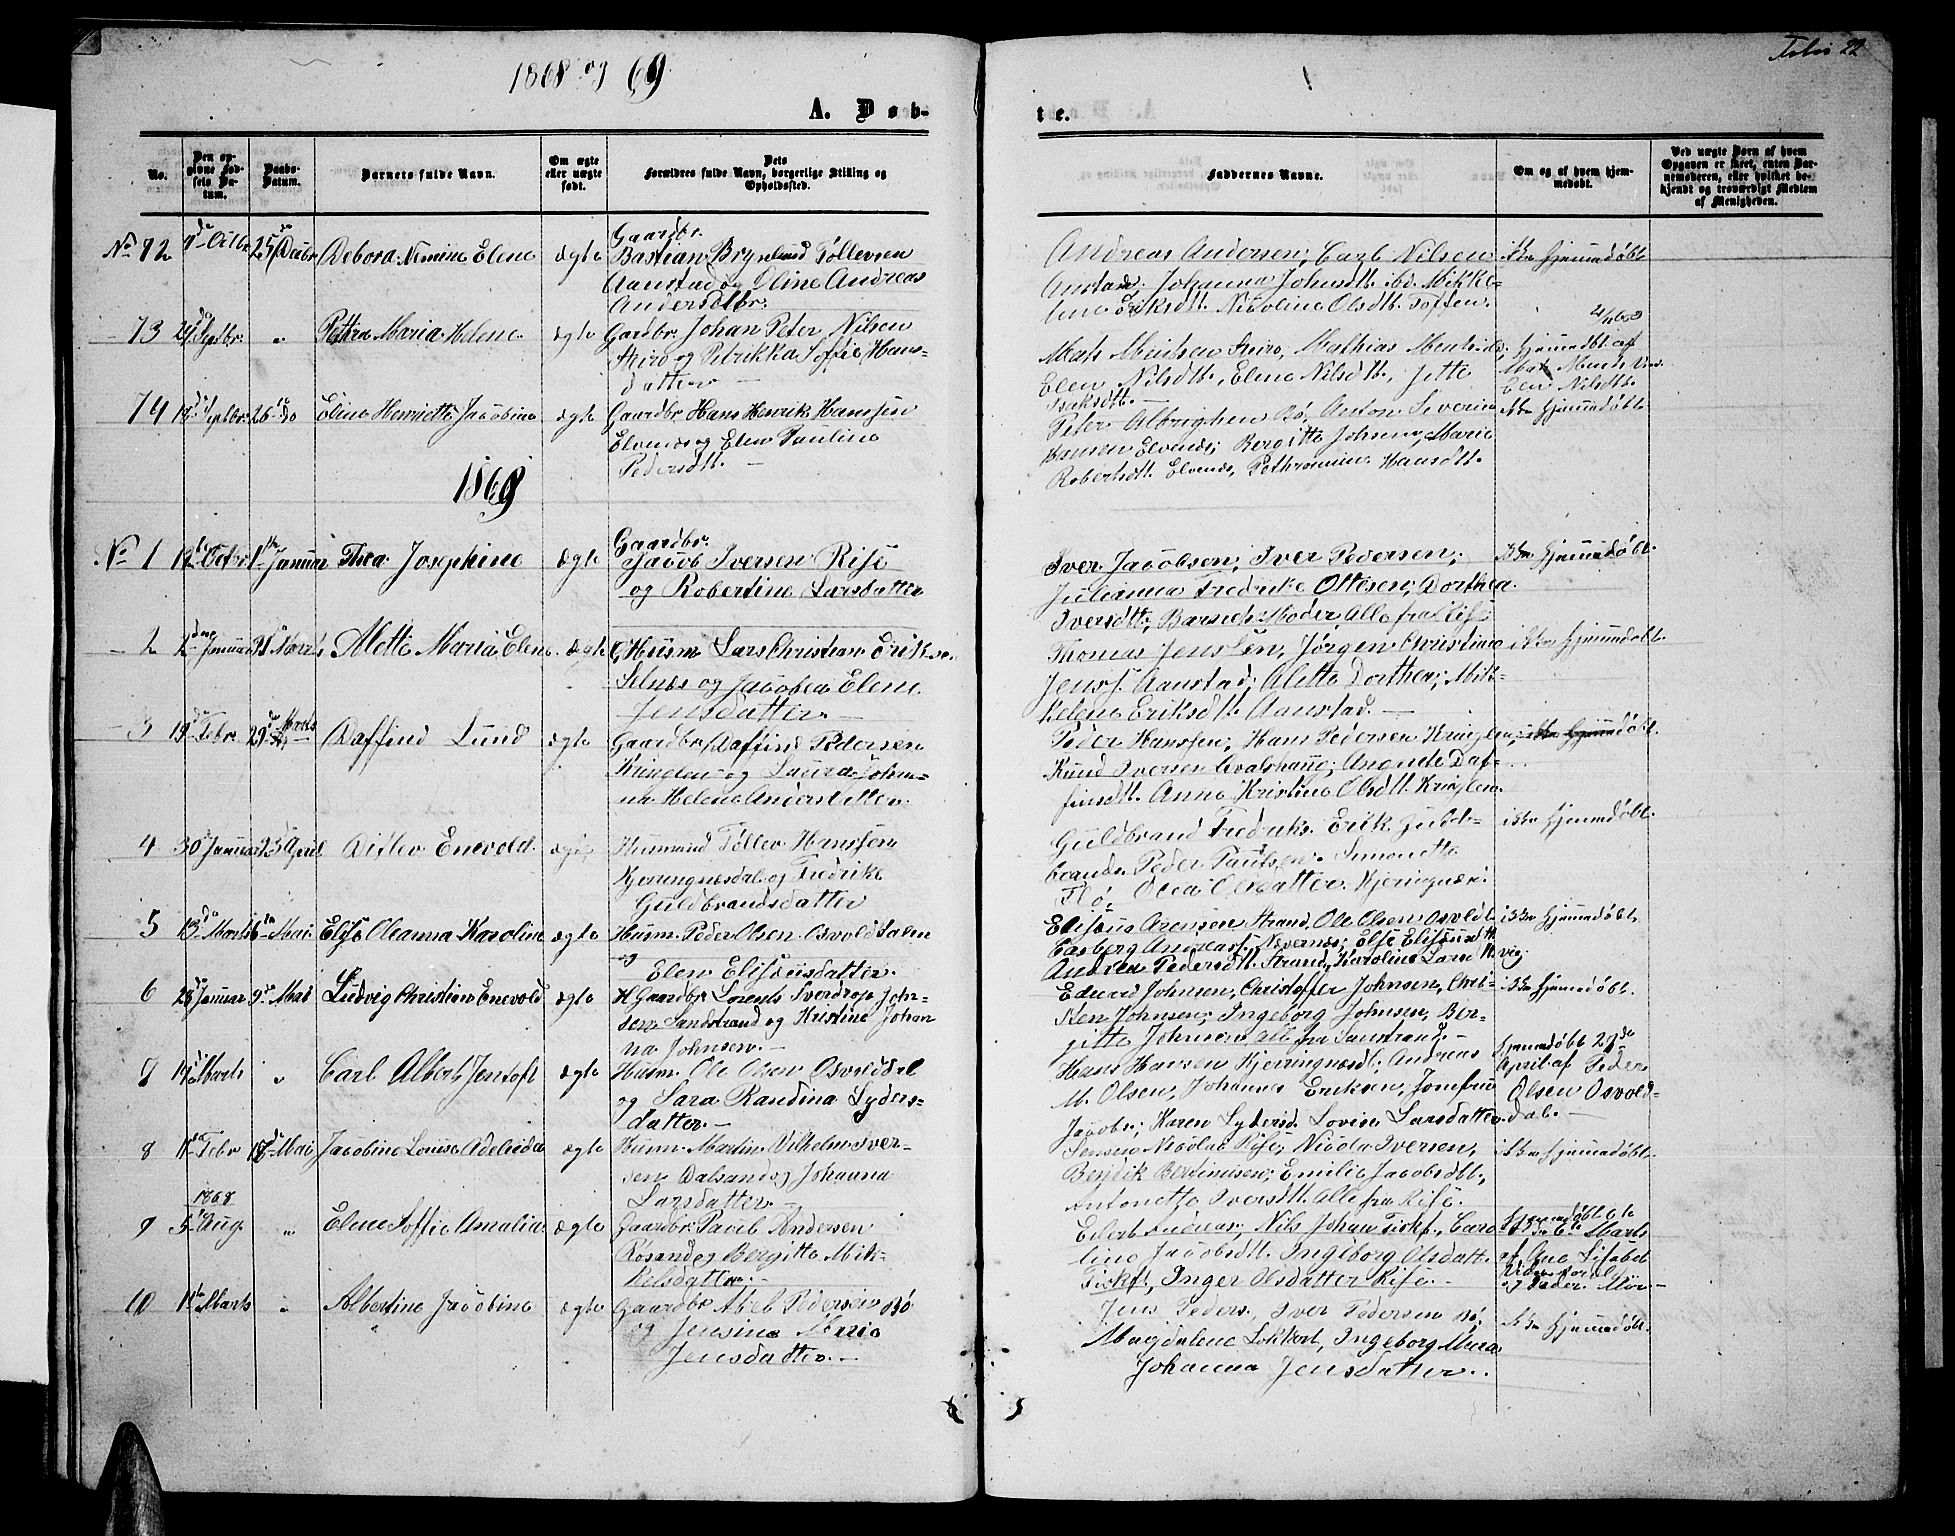 1868 og 69
Folio 22
A. Døb-
te.
No.
Den op-
givne Fød-
sels Da-
tum.
Daabs-
Datum.
Barnets fulde Navn.
Om ægte
eller uægte
født.
Dets
Forældres fulde Navn, borgerlige Stilling og
Opholdssted.
Faddernes Navne.
Om og af hvem hjem-
medøbt.
Ved uægte Børn af hvem
Opgaven er skeet, enten Bar-
nemoderen, eller hvilket be-
kjendt og troværdigt Medlem
af Menigheden.
No 72 Octbr. 25 Decbr Debora Nemine Elene ægte
Gaardbr.
Bastian Brynlund Tøllevsen
Aanstad og Oline Andreas
Andersdtbr.
Andreas Andersen, Carl Nilsen
Anstad, Johanna Johnsdt. ibd. Mikke-
line Eriksdt. Nicoline Olsdtt. Toften.
ikke hjemmedøbt
73 Septbr. " Pettra Maria Helene ægte
Gardbr Johan Peter Nilsen
og Petrikka Soffie Hans-
datter —
Mats Mentsen Mathias Mentsen
Elen Nilsdtt., Elene Nilsdtt., Jette
Isaksdtt. —
hjemmedbt. af
Elen Nilsdtt.
74 18 Septbr. 26 do Eline Henriette Jacobine ægte
Gaardbr Hans Henrik Hanssen
Elvenes og Elen Pauline
Pedersdtt. —
Peter Albrigtsen Bø, Anton Severin
Hansen Elvenes, Bergitte Johnsen, Marie
Robertsdtt. Elvenes, Pethromine Hansdtt.
ikke hjemmedøbt
1869
No 1 12 Octbr 1ste Januar Thea Josephine ægte
Gaardbr.
Jacob Iversen Risø
og Robertine Larsdatter
Iver Jacobsen, Iver Pedersen,
Julianna Fredrikke Ottesen, Dorthea
Iversdtt, Barnets Moder, Alle fra Risø
Ikke hjemmedøbt.
2 2 Januar 21 Marts Alette Maria Elene ægte
Husm Lars Christian Eriksen
Selnes og Jacobea Elene
Jensdatter —
Thomas Jenssen, Jørgen Christian
Jenss. Aanstad, Alette Dorthea, Mik-
kelene Eriksdt. Aanstad. —
ikke hjemmedøbt
3 19 Febr 29 Marts Daffind Lund ægte
Gaardbr Daffind Pedersen
Kringlen og Laura Johan-
na Helene Andersdatter.
Peder Hanssen, Hans Pedersen Kringlen,
Knud Iversen Hvalshaug, Angnete Daf-
finsdt. Anne Kristine Olsdtt. Kringlen
ikke hjemmedøbt.
4 30 Januar 23 April Ditlev Enevold ægte
Husmand Tøllev Hanssen
Kjerringnæsdal og Fredrike
Guldbrandsdatter
Guldbrand Fredriks. Erik Guld-
brands. Peder Paulsen. Simonette
Flø, Olea Olsdatter. Kjeringnæs.
ikke hjemmedøbt.
5 13 Marts 6 Mai Elise Oleanna Karoline ægte
Husm. Peder Olsen Osvolddalen
og
Elen Elisæusdatter.
Elisæus Arensen Strand, Ole Olsen Osvold
Andreass. Nævernes, Else Elisæusdtt
Andrea Pedersdtt. Strand, Karoline Larsdtt. vig
ikke hjemmedøbt.
6 28 Januar 9 Mai Ludvig Christian Enevold ægte
Gaardbr Lorents Sverdrop John-
sen Sandstrand og Kristine Johan
na Johnsen. —
Eduard Johnsen, Christoffer Johnsen, Chris-
ten Johnsen, Ingeborg Johnsen, Ber-
gitte Johnsen alle fra Sanstrand. —
ikke hjemmedøbt.
7 19 Marts " Carl Albert Jentoft ægte
Husm. Ole Olsen Osvolddal
og Sara Randina Lyders-
datter. —
Hans Hansen Kjerringnæsd. Andreas
M. Olsen, Johannes Eriksen, Jomfru
Jacobs., Karen Lydersd. Lovise Larsdatter
hjemmedøbt 29de
April af Peder
Olsen Osvold-
dal. —
8 11 Febr 17 Mai Jacobine Louise Adeleida ægte
Husm. Martin Vilhelm Iver-
sen Dalsand og Johanna
Larsdatter. —
Jensen Nicolai Risø, Nicolai Iversen,
Bendik Bentinusen, Emilie Jacobsdtt.
Antonette Iversdtt. Alle fra Risø.
ikke hjemmedøbt.
1868
9 5 Aug. " Elene Soffie Amalia ægte
Gaardbr. Pavel Andersen
Røsand og Bergitte Mik-
kelsdatter. —
Edert Andreas, Nils Johan Fiskf., Caro
line Jacobsdtt. Ingeborg Olsdatt.
Fiskf., Inger Olsdatter Risø. —
hjemmedøbt
6te Marts
af Ane Lisabet
og Peder
10 11 Marts " Albertine Jacobine ægte
Gaardbr Abel Pedersen Bø
og Jensine Maria
Jensdatter. —
Jens Peders., Iver Pedersen Bø,
Magdalene Lokkert, Ingeborg Maria
Johanna Jensdatter.
ikke hjemmedøbt.